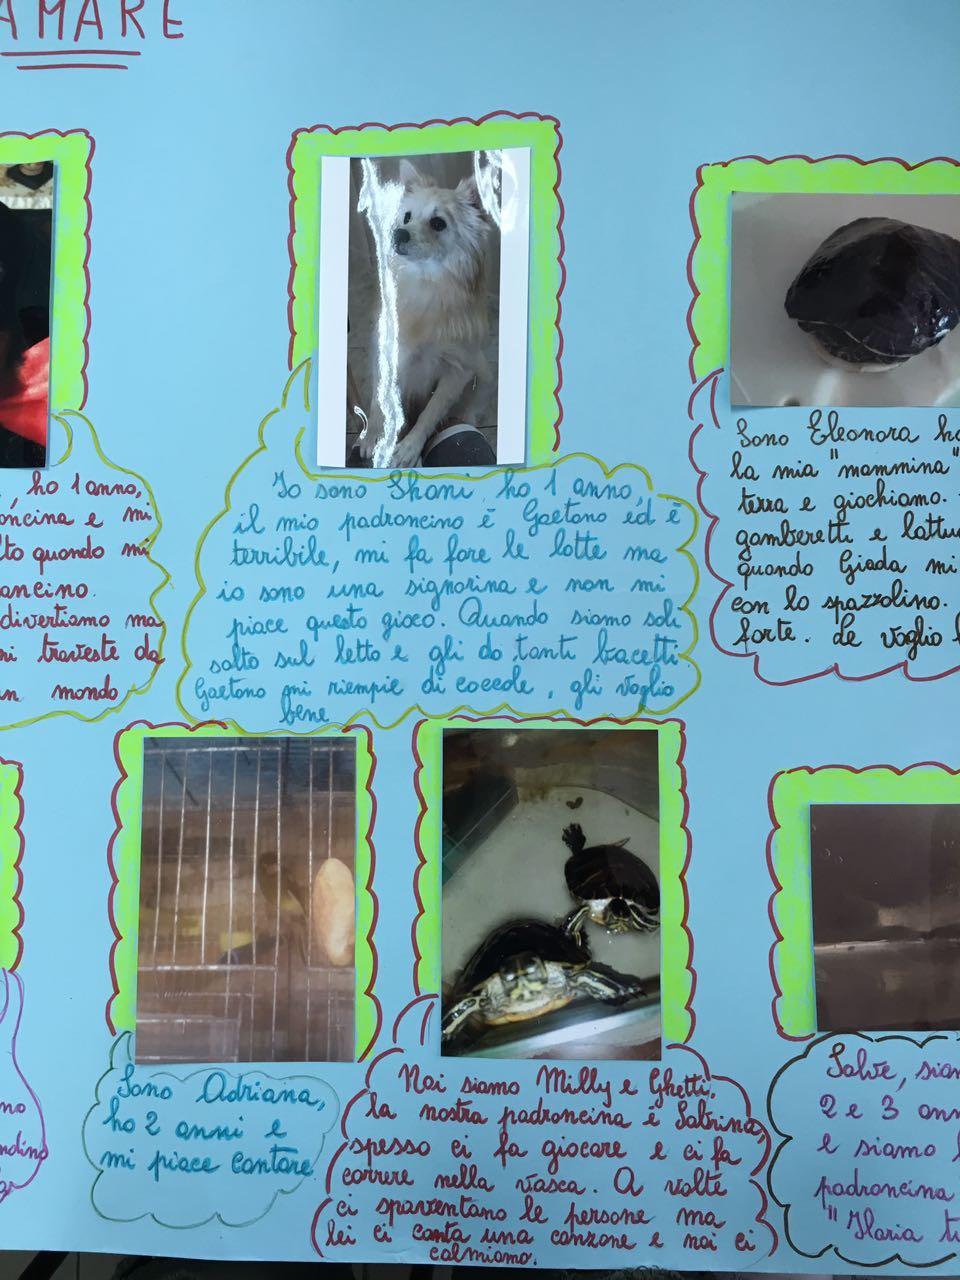 AMARE
, ho 1 anno,
oncina e mi
lto quando mi
ancino.
divertiamo ma
mi traveste da
un mondo
Io sono Shani, ho 1 anno,
il mio padroncino è Gaetano ed è
terribile, mi fa fare le lotte ma
io sono una signorina e non mi
piace questo gioco. Quando siamo soli
salto sul letto e gli do tanti bacetti
Gaetano mi riempie di coccole, gli voglio
bene
Sono Eleonora ho
la mia "mammina"
terra e giochiamo.
gamberetti e lattu
quando Giada mi
con lo spazzolino.
forte. Le voglio
no
ndino
Sono Adriana,
ho 2 anni e
mi piace cantare
Noi siamo Milly e Ghetti,
la nostra padroncina è Sabrina,
spesso ci fa giocare e ci fa
correre nella vasca. A volte
ci spaventano le persone ma
lei ci canta una canzone e noi ci
calmiamo.
Salve, siam
2 e 3 ann
e siamo
padroncina
"Ilaria tu